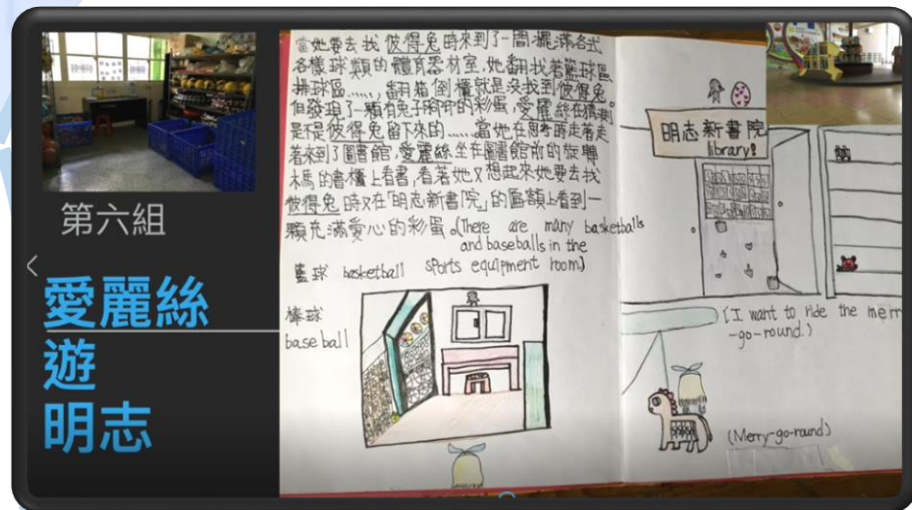 第六組
愛麗絲
遊
明志
當她要去找彼得兔時來到了一間擺滿各式
各樣球類的體育器材室,她翻找著籃球區
排球區……,翻箱倒櫃就是沒找到彼得兔。
但發現了一顆有兔子腳印的彩蛋,愛麗絲在猜測
是不是彼得兔留下來的……當她在思考時走著走
著來到了圖書館,愛麗絲坐在圖書館前的旋轉
木馬的書櫃上看書,看著她又想起來她要去找
彼得兔時又在「明志新書院」的匾額上看到一
顆充滿愛心的彩蛋。(There are many basketballs
and baseballs in the
籃球 basketball sports equipment room)
棒球
baseball
明志新書院
library
(I want to ride the merr
-go-round.)
(Merry-go-round)